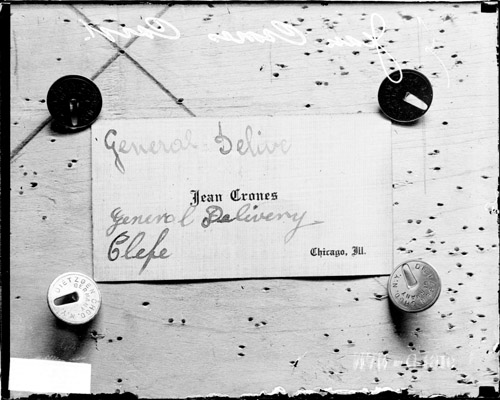 Jean Crones Card.
General Delive
Jean Crones
General Delivery
Clefe
Chicago, Ill.
DIETZGEN CHGO. N.Y.
GERMANY